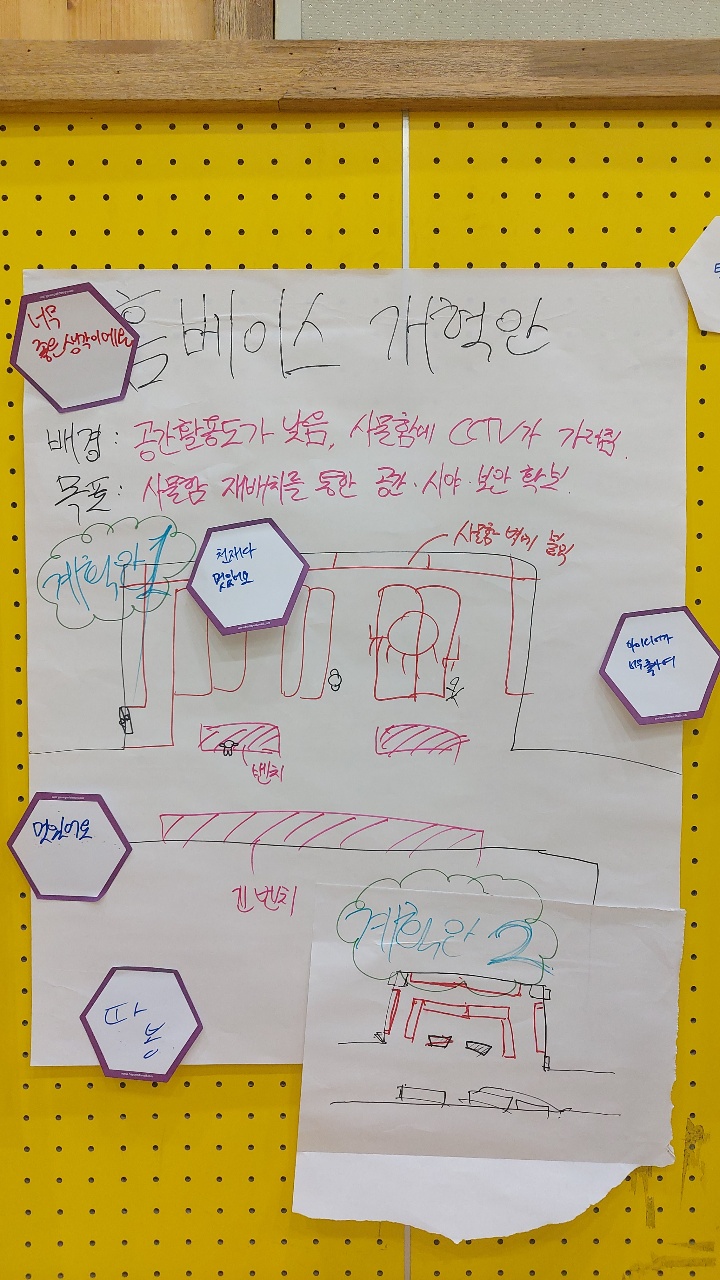 홈베이스 개혁안
너무
좋은 생각이에요
배경: 공간활용도가 낮음, 사물함에 CCTV가 가려짐.
목표: 사물함 재배치를 통한 공간·시야·보안 확보.
계획안 1
천재다
멋있어요
사물함 벽에 붙임
아이디어가
너무 좋아여
벤치
멋있어요
긴 벤치
계획안 2
따
봉